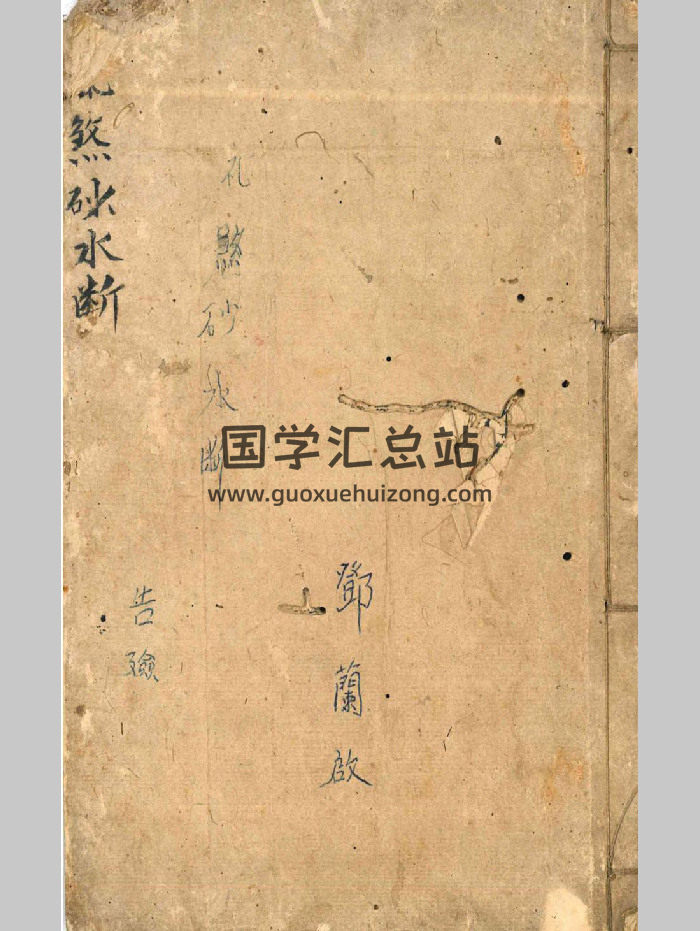 煞砂水断
孔煞砂水断
鄧蘭啟
告
国学汇总站
www.guoxuehuizong.com